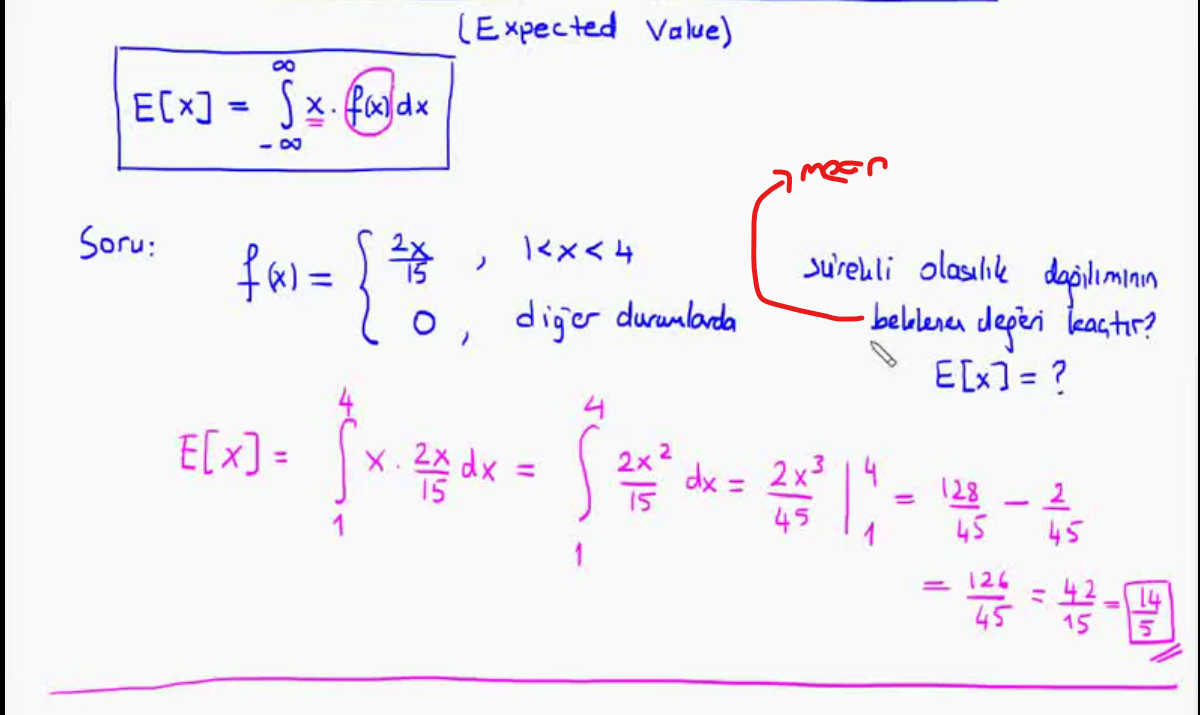 (Expected Value)
E[x] = ∫_{-∞}^{∞} x · f(x) dx
→ mean
Soru: f(x) = { 2x/15 , 1 < x < 4
0 , diğer durumlarda
sürekli olasılık dağılımının
beklenen değeri kaçtır?
E[x] = ?
E[x] = ∫_{1}^{4} x · 2x/15 dx = ∫_{1}^{4} 2x²/15 dx = 2x³/45 |_{1}^{4} = 128/45 - 2/45
= 126/45 = 42/15 = 14/5